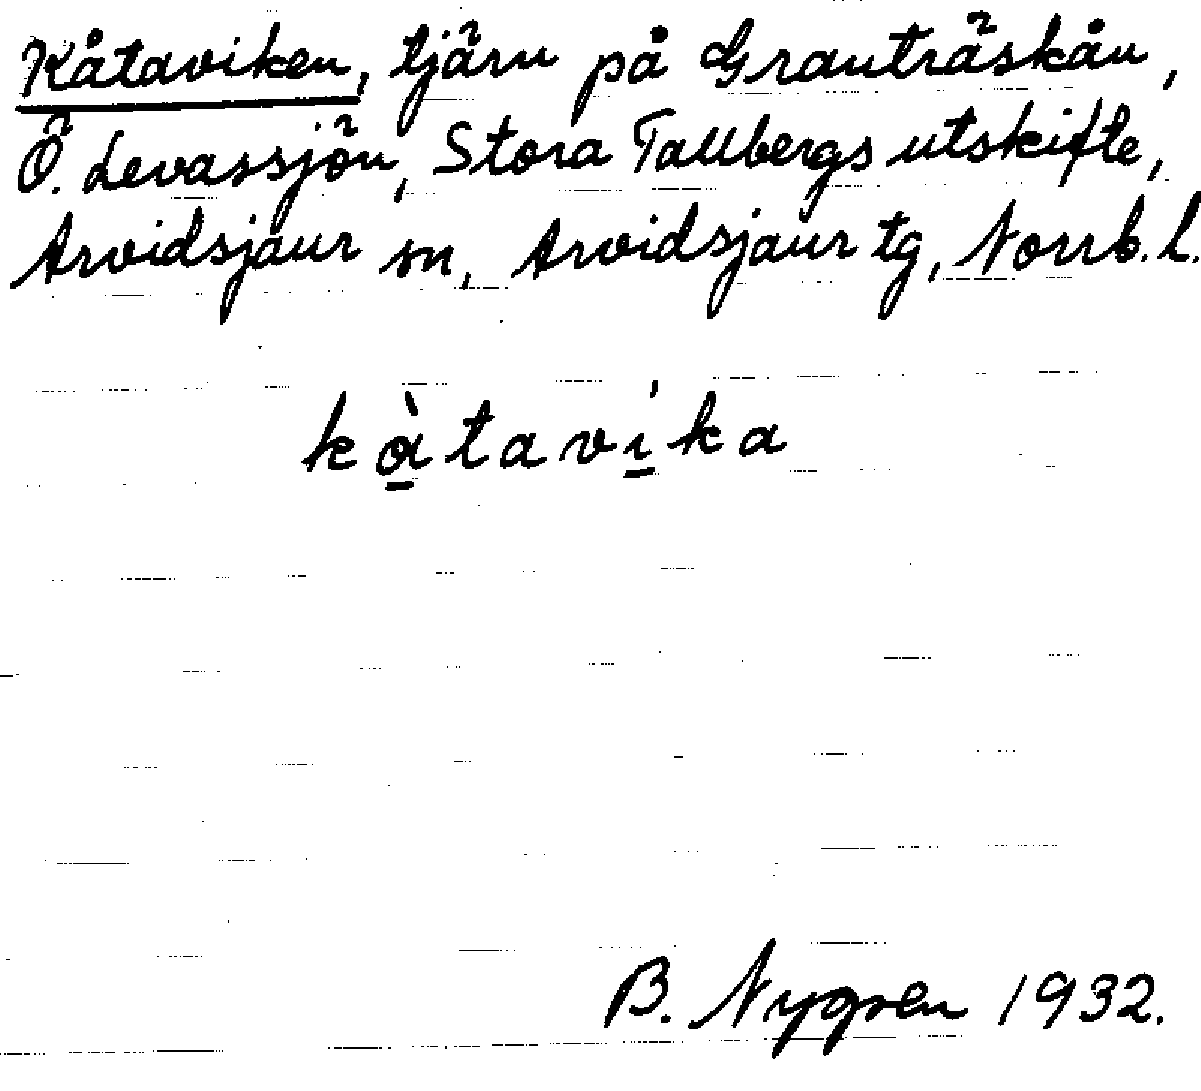 Kåtaviken, tjärn på Granträskån,
Ö. Levassjön, Stora Tallbergs utskifte,
Arvidsjaur sn, Arvidsjaur tg, Norrb. l.
kàtavíka
B. Nygren 1932.